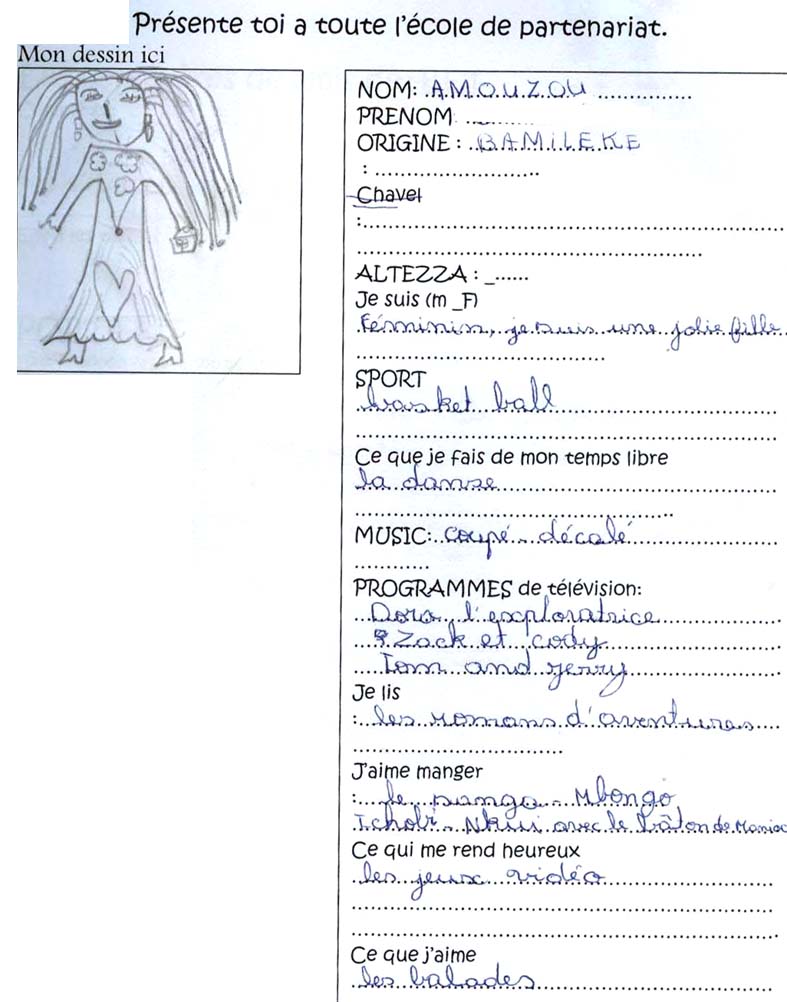 Présente toi a toute l'école de partenariat.
Mon dessin ici
NOM: AMOUZOU
PRENOM
ORIGINE : BAMILEKE
:
Chavel
:
ALTEZZA : _
Je suis (m _F)
Féminin, je suis une jolie fille
SPORT
basket ball
Ce que je fais de mon temps libre
la danse
MUSIC: coupé-décalé
PROGRAMMES de télévision:
Dora l'exploratrice
Zack et cody
Tom and jerry
Je lis
: les romans d'aventures
J'aime manger
: le panga - Mbongo
Tchobi - Nkui avec le bâton de Manioc
Ce qui me rend heureux
les jeux vidéo
Ce que j'aime
les balades